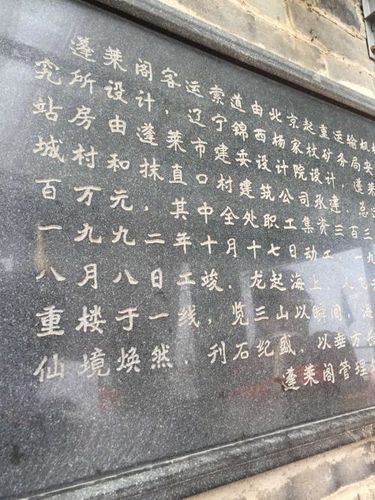 蓬莱阁客运索道由北京起重运输机械
究所设计，辽宁锦西杨家杖矿务局安
站房由蓬莱市建委设计院设计，蓬莱
城村和抹直口村建筑公司承建，总
百万元，其中全处职工集资三百三
一九九二年十月十七日动工，一九
八月八日工竣。龙起海上，人飞
重楼于一线，览三山以瞬间，海
仙境焕然，刊石纪盛，以垂方
蓬莱阁管理